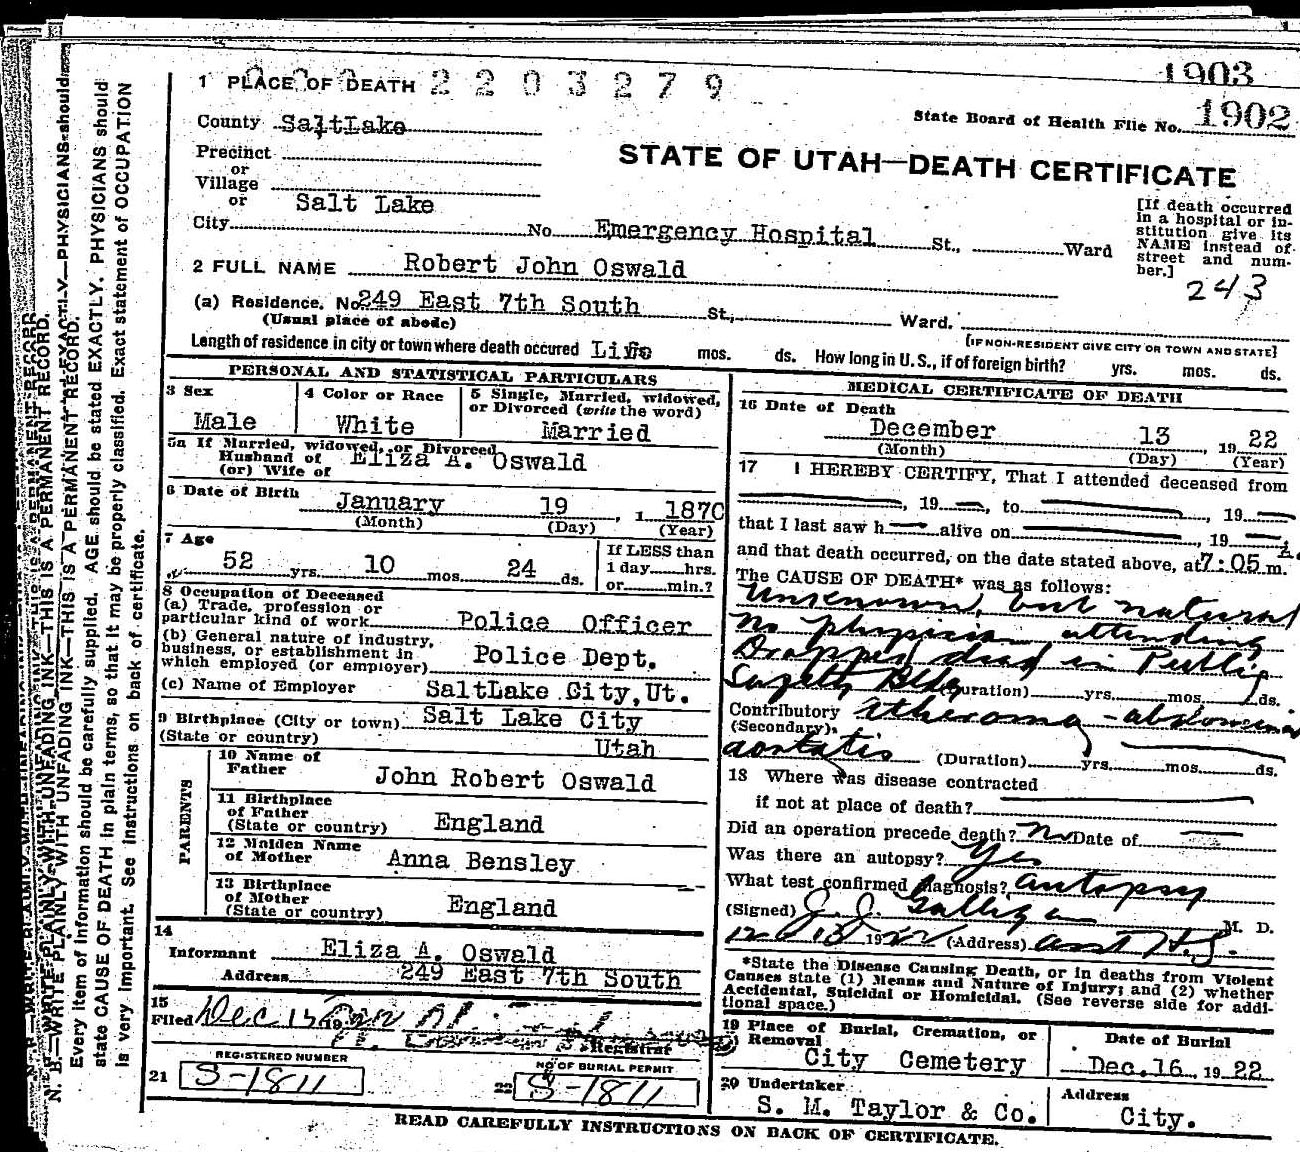 1903
1 PLACE OF DEATH 2203279
State Board of Health File No. 1902
County SaltLake
STATE OF UTAH—DEATH CERTIFICATE
Precinct
or
Village
or
City Salt Lake No. Emergency Hospital St., Ward
[If death occurred
in a hospital or in-
stitution give its
NAME instead of
street and num-
ber.]
243
2 FULL NAME Robert John Oswald
(a) Residence. No. 249 East 7th South St., Ward.
(Usual place of abode)
[IF NON-RESIDENT GIVE CITY OR TOWN AND STATE]
Length of residence in city or town where death occured Life mos. ds. How long in U. S., if of foreign birth? yrs. mos. ds.
PERSONAL AND STATISTICAL PARTICULARS
3 Sex
Male
4 Color or Race
White
5 Single, Married, widowed,
or Divorced (write the word)
Married
5a If Married, widowed, or Divorced
Husband of
(or) Wife of Eliza A. Oswald
6 Date of Birth January 19, 1870
(Month) (Day) (Year)
7 Age
52 yrs. 10 mos. 24 ds.
If LESS than
1 day hrs.
or min.?
8 Occupation of Deceased
(a) Trade, profession or
particular kind of work Police Officer
(b) General nature of industry,
business, or establishment in
which employed (or employer) Police Dept.
(c) Name of Employer SaltLake City, Ut.
9 Birthplace (City or town) Salt Lake City
(State or country) Utah
PARENTS
10 Name of
Father John Robert Oswald
11 Birthplace
of Father
(State or country) England
12 Maiden Name
of Mother Anna Bensley
13 Birthplace
of Mother
(State or country) England
14
Informant Eliza A. Oswald
Address 249 East 7th South
15
Filed Dec 15 1922
Registrar
REGISTERED NUMBER
21 S-1811
NO OF BURIAL PERMIT
22 S-1811
MEDICAL CERTIFICATE OF DEATH
16 Date of Death
December 13 1922
(Month) (Day) (Year)
17 I HEREBY CERTIFY, That I attended deceased from
, 19 , to , 19
that I last saw h alive on , 19
and that death occurred, on the date stated above, at 7:05 m.
The CAUSE OF DEATH* was as follows:
Unknown, but natural
no physician attending
Dropped dead in Public
Safety Bldg (Duration) yrs. mos. ds.
Contributory atheroma - abdominal
(Secondary)
(Duration) yrs. mos. ds.
18 Where was disease contracted
if not at place of death?
Did an operation precede death? no Date of
Was there an autopsy? Yes
What test confirmed diagnosis? autopsy
(Signed) J. J. Galligan M. D.
12/13 1922 (Address)
*State the Disease Causing Death, or in deaths from Violent
Causes state (1) Means and Nature of Injury; and (2) whether
Accidental, Suicidal or Homicidal. (See reverse side for addi-
tional space.)
19 Place of Burial, Cremation, or
Removal
City Cemetery
Date of Burial
Dec. 16, 1922
20 Undertaker
S. M. Taylor & Co.
Address
City.
READ CAREFULLY INSTRUCTIONS ON BACK OF CERTIFICATE.
N. B.—WRITE PLAINLY WITH UNFADING INK—THIS IS A PERMANENT RECORD.
Every item of information should be carefully supplied. AGE should be stated EXACTLY. PHYSICIANS should
state CAUSE OF DEATH in plain terms, so that it may be properly classified. Exact statement of OCCUPATION
is very important. See instructions on back of certificate.